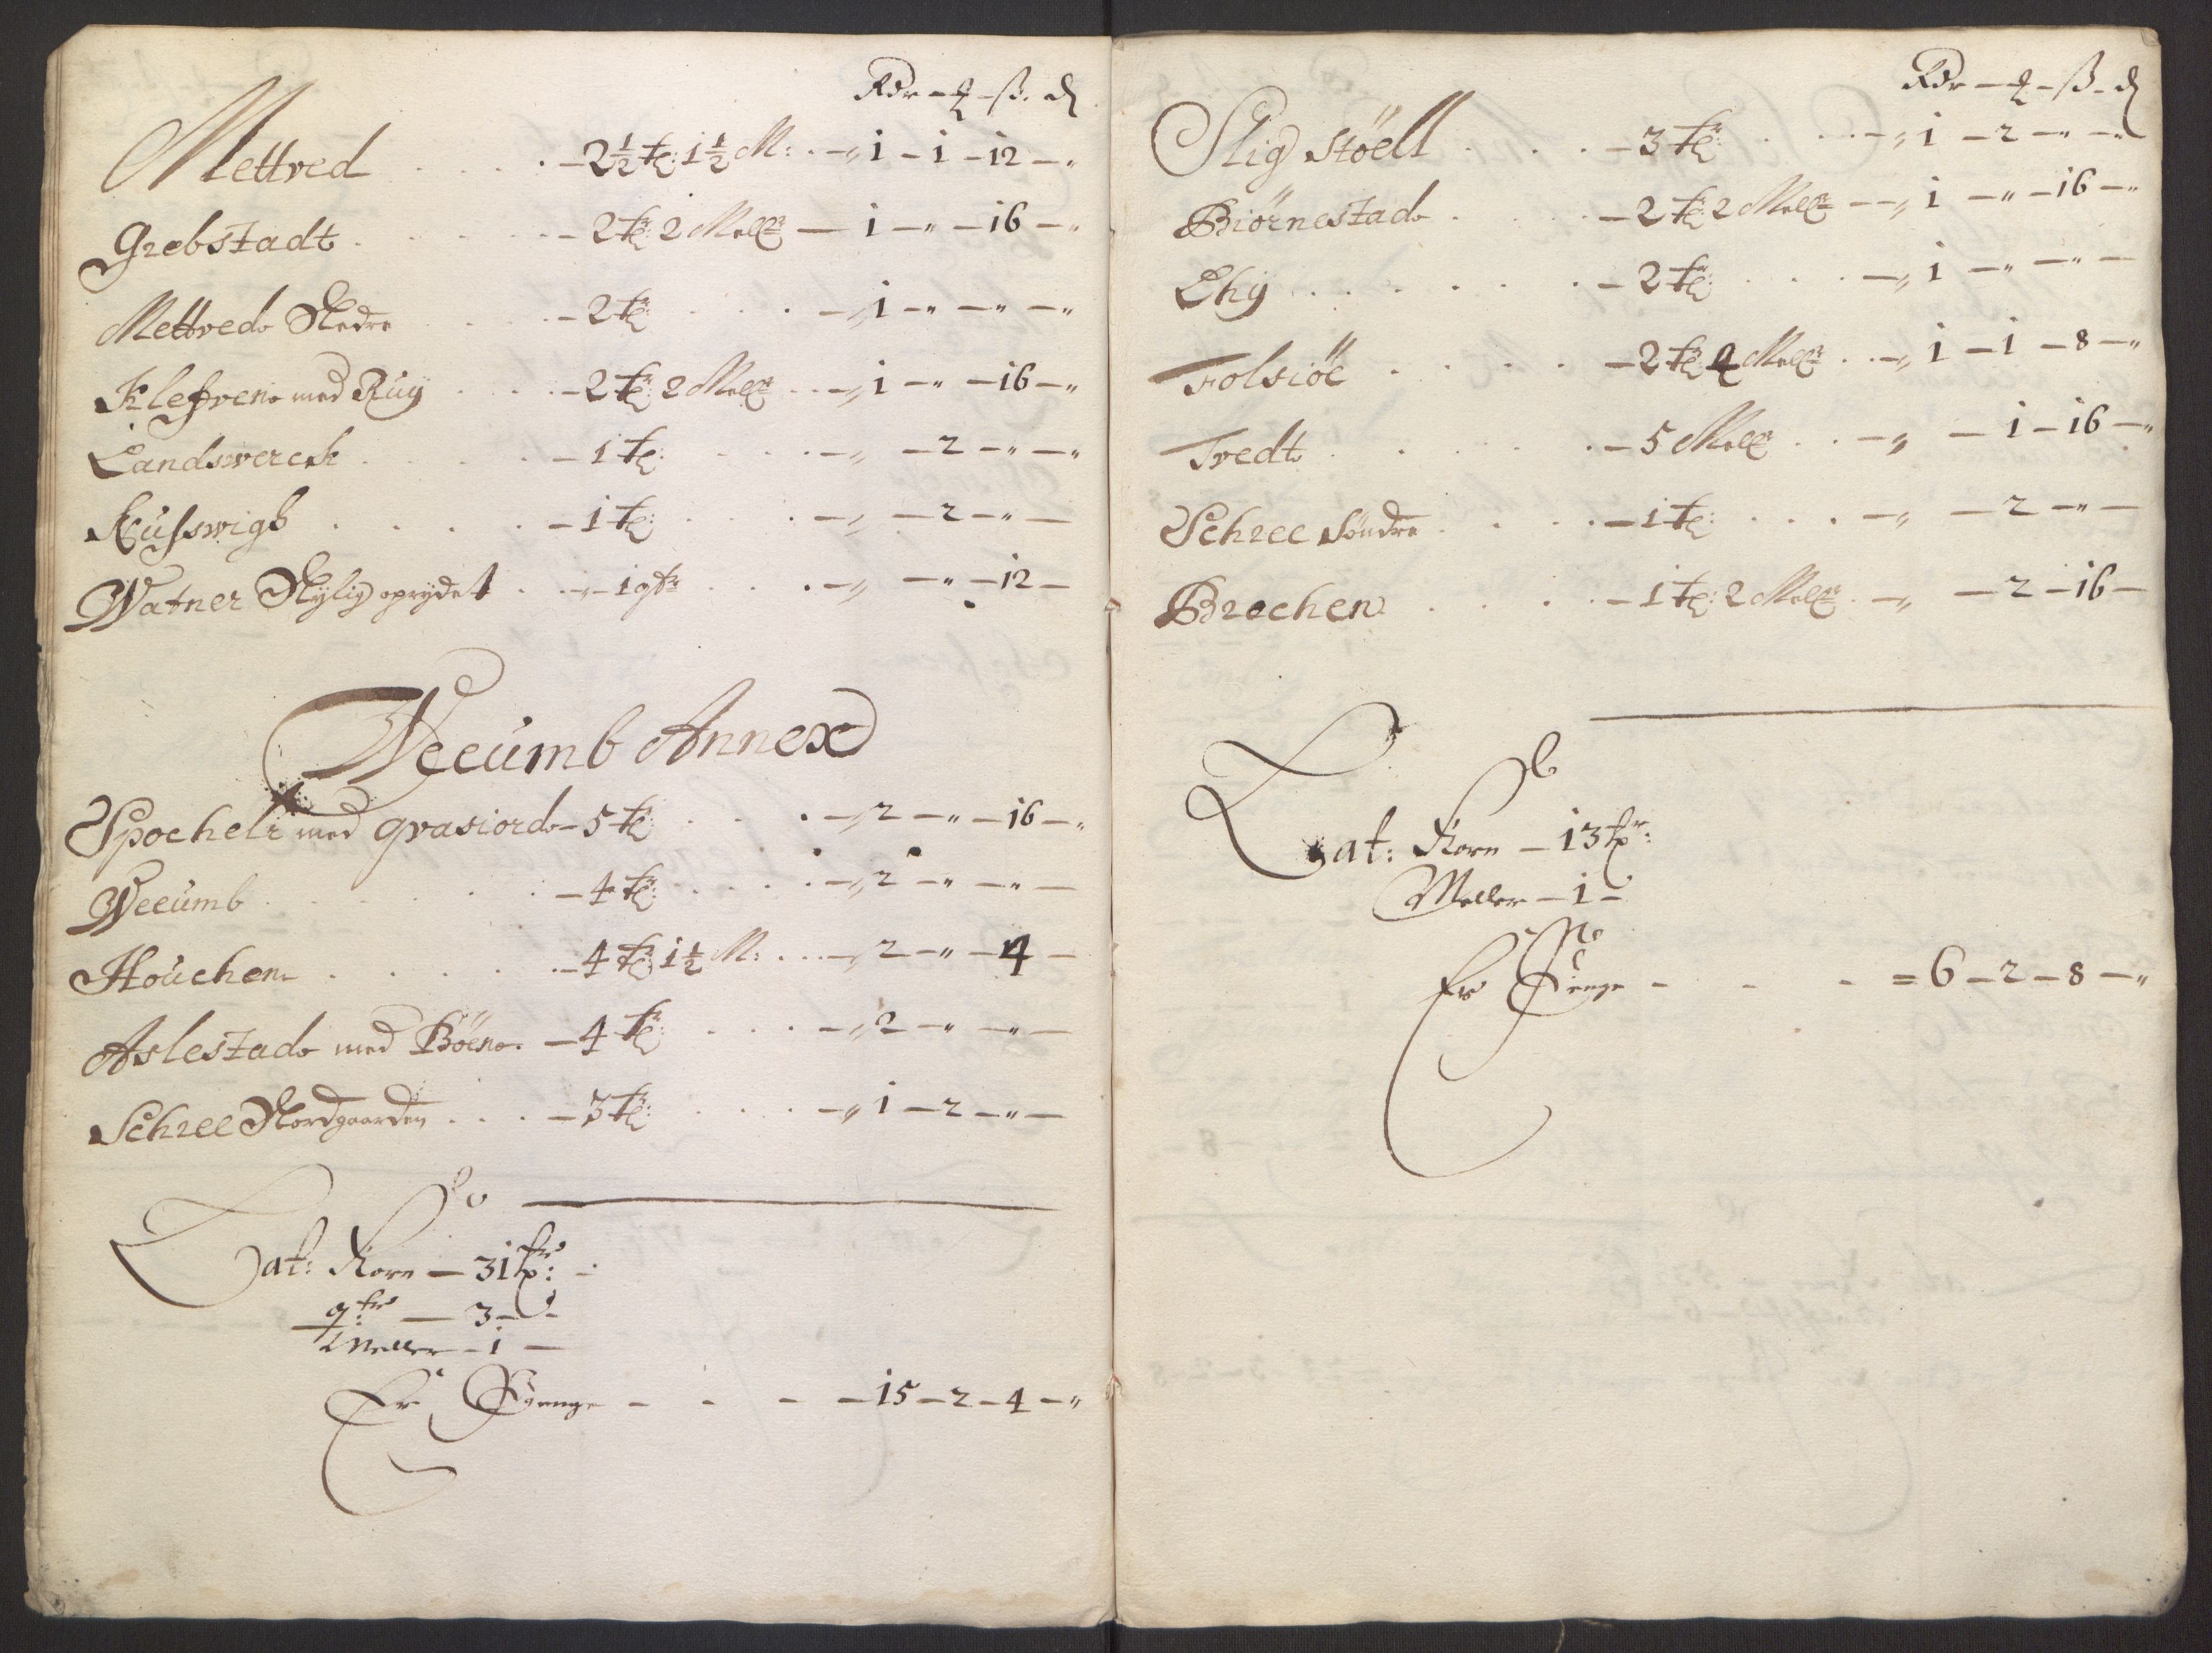 Rdr – ℥ – ß – ₰
Mettved – 2½ tr: 1½ M: – „ 1 – 1 – 12 – „
Grebstadt – 2 tr: 2 Mellr – 1 – „ – 16 – „
Mettved Nedre – 2 tr: – „ 1 – „ – „ – „
Klefven med Ruy – 2 tr: 2 Mellr – „ 1 – „ – 16 – „
Landswerck – 1 tr: – „ – 2 – „ – „
Kufswigh – 1 tr: – „ – 2 – „ –
Watner Nylig oprydet – 1 qtr – „ – „ – 12 –
Weeumb Annex
Spochelr med qvasiord – 5 tr: – „ 2 – „ – 16 – „
Weeumb – 4 tr: – „ 2 – „ – „ –
Houchen – 4 tr: 1½ M: – „ 2 – „ – 4 –
Aslestad med Böen – 4 tr: – „ 2 – „ – „ –
Schree Nordgaarden – 3 tr: – „ 1 – 2 – „ –
Lat: Korn – 31 tr:
qtr – 3 –
Meller – 1 –
Er Penge – 15 – 2 – 4 – „
Rdr – ℥ – ß – ₰
Sligstöell – 3 tr: – „ 1 – 2 – „ – „
Biörnestad – 2 tr: 2 Mellr – „ 1 – „ – 16 – „
Ehy – 2 tr: – „ 1 – „ – „ –
Folsiöe – 2 tr: 4 Mellr – „ 1 – 1 – 8 – „
Tvedt – 5 Mellr – „ – 1 – 16 – „
Schree Söndre – 1 tr: – „ – 2 – „ –
Brechen – 1 tr: 2 Mellr – „ – 2 – 16 –
Lat: Korn – 13 tr:
Meller – 1 –
Er Penge – = 6 – 2 – 8 – „